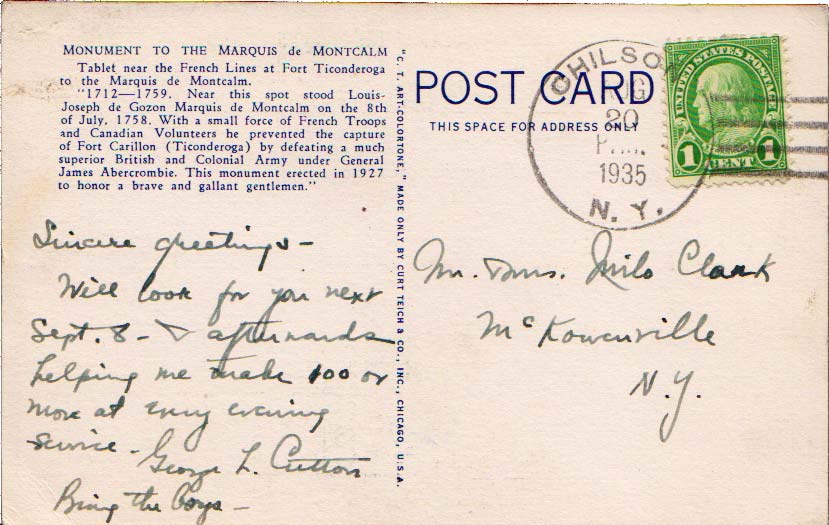 MONUMENT TO THE MARQUIS de MONTCALM
Tablet near the French Lines at Fort Ticonderoga
to the Marquis de Montcalm.
"1712—1759. Near this spot stood Louis-
Joseph de Gozon Marquis de Montcalm on the 8th
of July, 1758. With a small force of French Troops
and Canadian Volunteers he prevented the capture
of Fort Carillon (Ticonderoga) by defeating a much
superior British and Colonial Army under General
James Abercrombie. This monument erected in 1927
to honor a brave and gallant gentlemen."
Sincere greetings —
Will look for you next
Sept. 8 - & afterwards
helping me make 100 or
more at every evening
service - George L. Cutton
Bring the boys —
"C. T. ART-COLORTONE," MADE ONLY BY CURT TEICH & CO., INC., CHICAGO, U.S.A.
POST CARD
THIS SPACE FOR ADDRESS ONLY
CHILSON
AUG
20
P.M.
1935
N. Y.
UNITED STATES POSTAGE
1 CENT 1
Mr. & Mrs. Milo Clark
McKownville
N.Y.